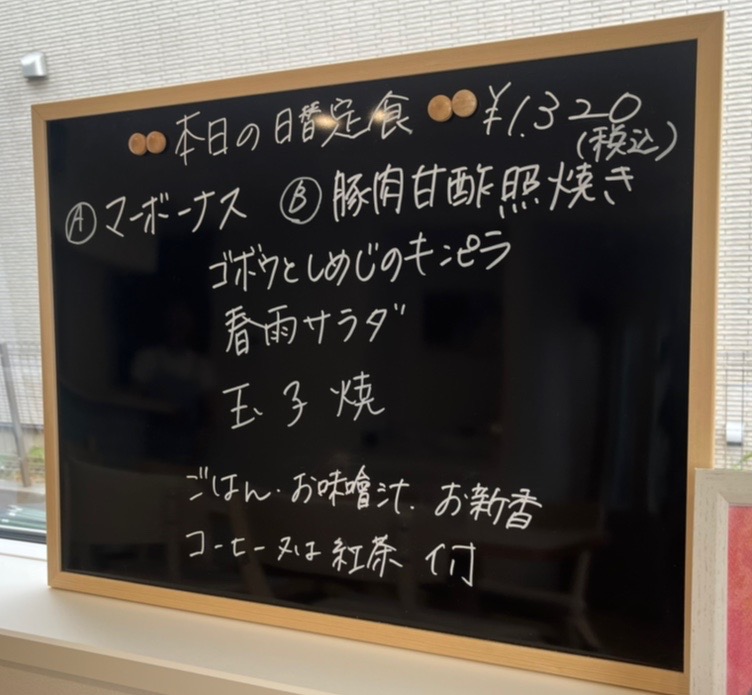 本日の日替定食 ¥1.320
(税込)
Ⓐマーボーナス Ⓑ豚肉甘酢照焼き
ゴボウとしめじのキンピラ
春雨サラダ
玉子焼
ごはん・お味噌汁.お新香
コーヒー又は紅茶 付